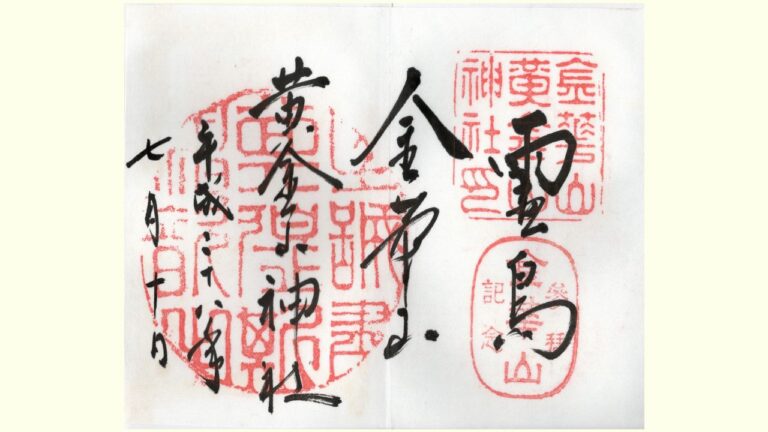 金華山
黄金山
神社印
霊島
参拝
金華山
記念
金華山
黄金山神社
平成二十八年
七月十日